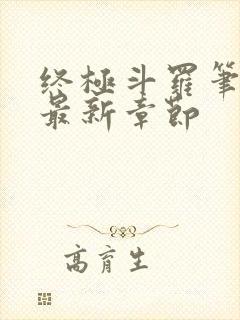 终极斗羅筆
最新章節
高育生